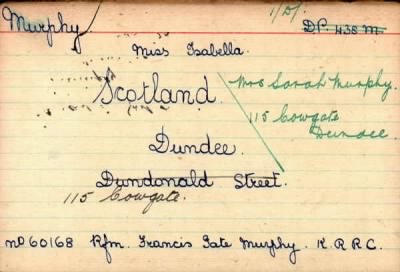 Murphy 1/D/. D.P. 438 M.
Miss Isabella.
Scotland. Mrs Sarah Murphy.
115 Cowgate
Dundee
Dundee.
Dundonald Street.
115 Cowgate.
No 60168 Rfm. Francis Tate Murphy. K.R.R.C.